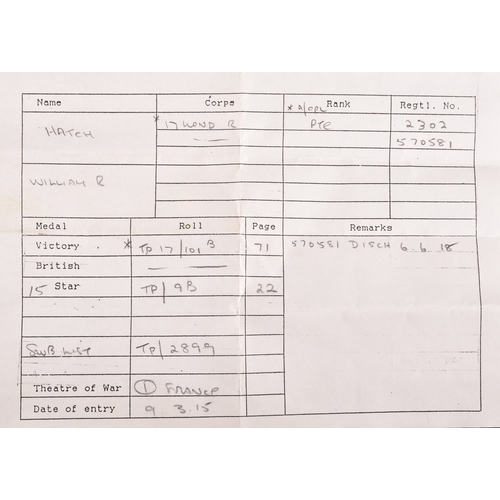 Name Corps Rank Regtl. No.
* A/CPL
HATCH * 17 LOND R PTE 2302
570581
WILLIAM R
Medal Roll Page Remarks
Victory * TP 17/101 B 71 570581 DISCH 6.6.18
British
15 Star TP/9B 22
SWB LIST TP/2899
Theatre of War (1) FRANCE
Date of entry 9 3.15